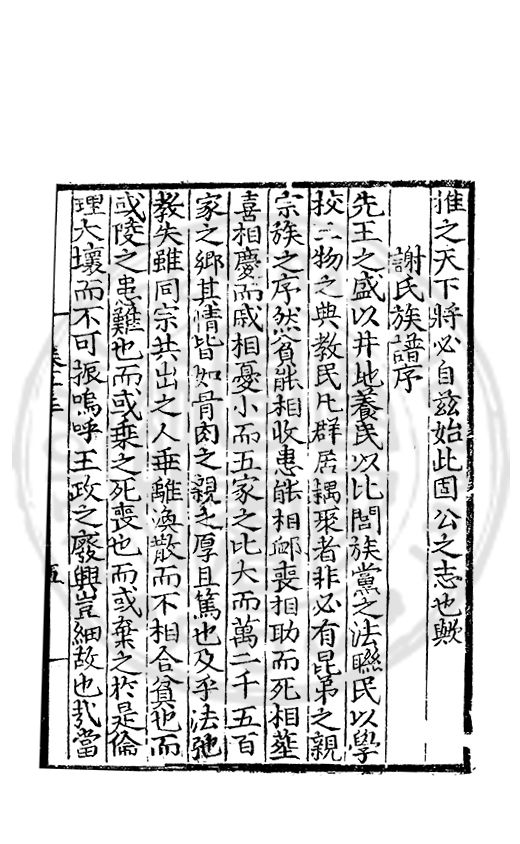 推之天下將必自茲始此固公之志也歟
謝氏族譜序
先王之盛以井地養民以比閭族黨之法聯民以學
挍三物之典教民凡群居耦聚者非必有昆弟之親
宗族之序然貧能相收患能相䘏喪相助而死相塟
喜相慶而戚相憂小而五家之比大而萬二千五百
家之鄉其情皆如骨肉之親之厚且篤也及乎法弛
教失雖同宗共出之人乖離渙散而不相合貧也而
或陵之患難也而或棄之死喪也而或棄之於是倫
理大壞而不可振嗚呼王政之廢興豈細故也㢤當
卷十三
五